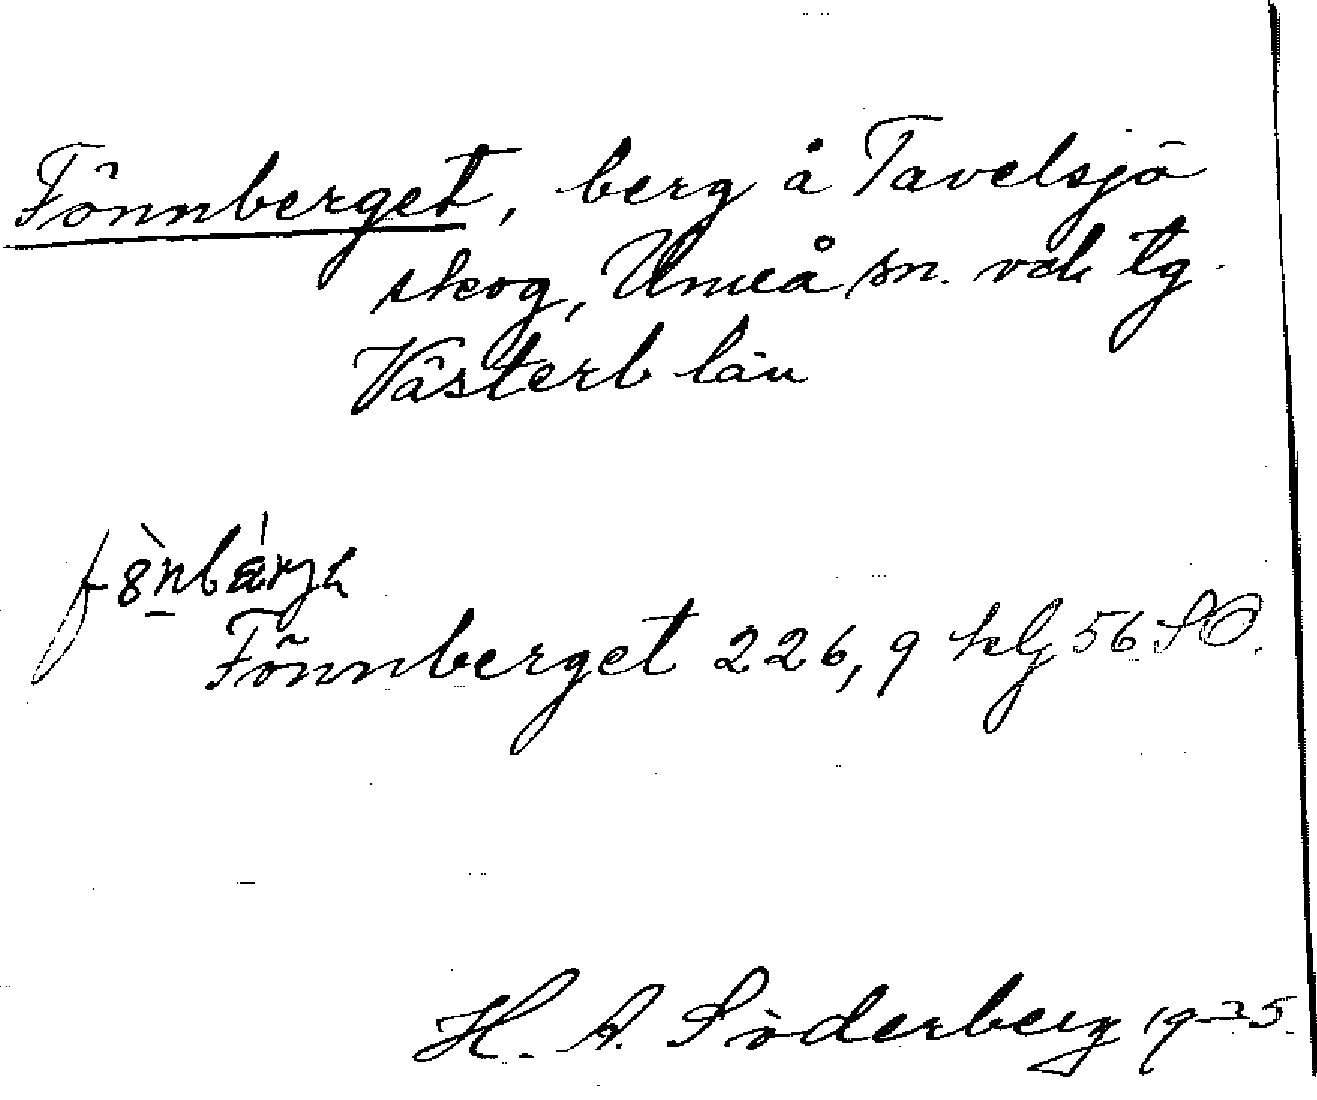 Fönnberget, berg å Tavelsjö
skog, Umeå sn. och tg.
Västerb län
Fönnberget 226,9 kbl 56 SO.
H. A. Söderberg 1925.